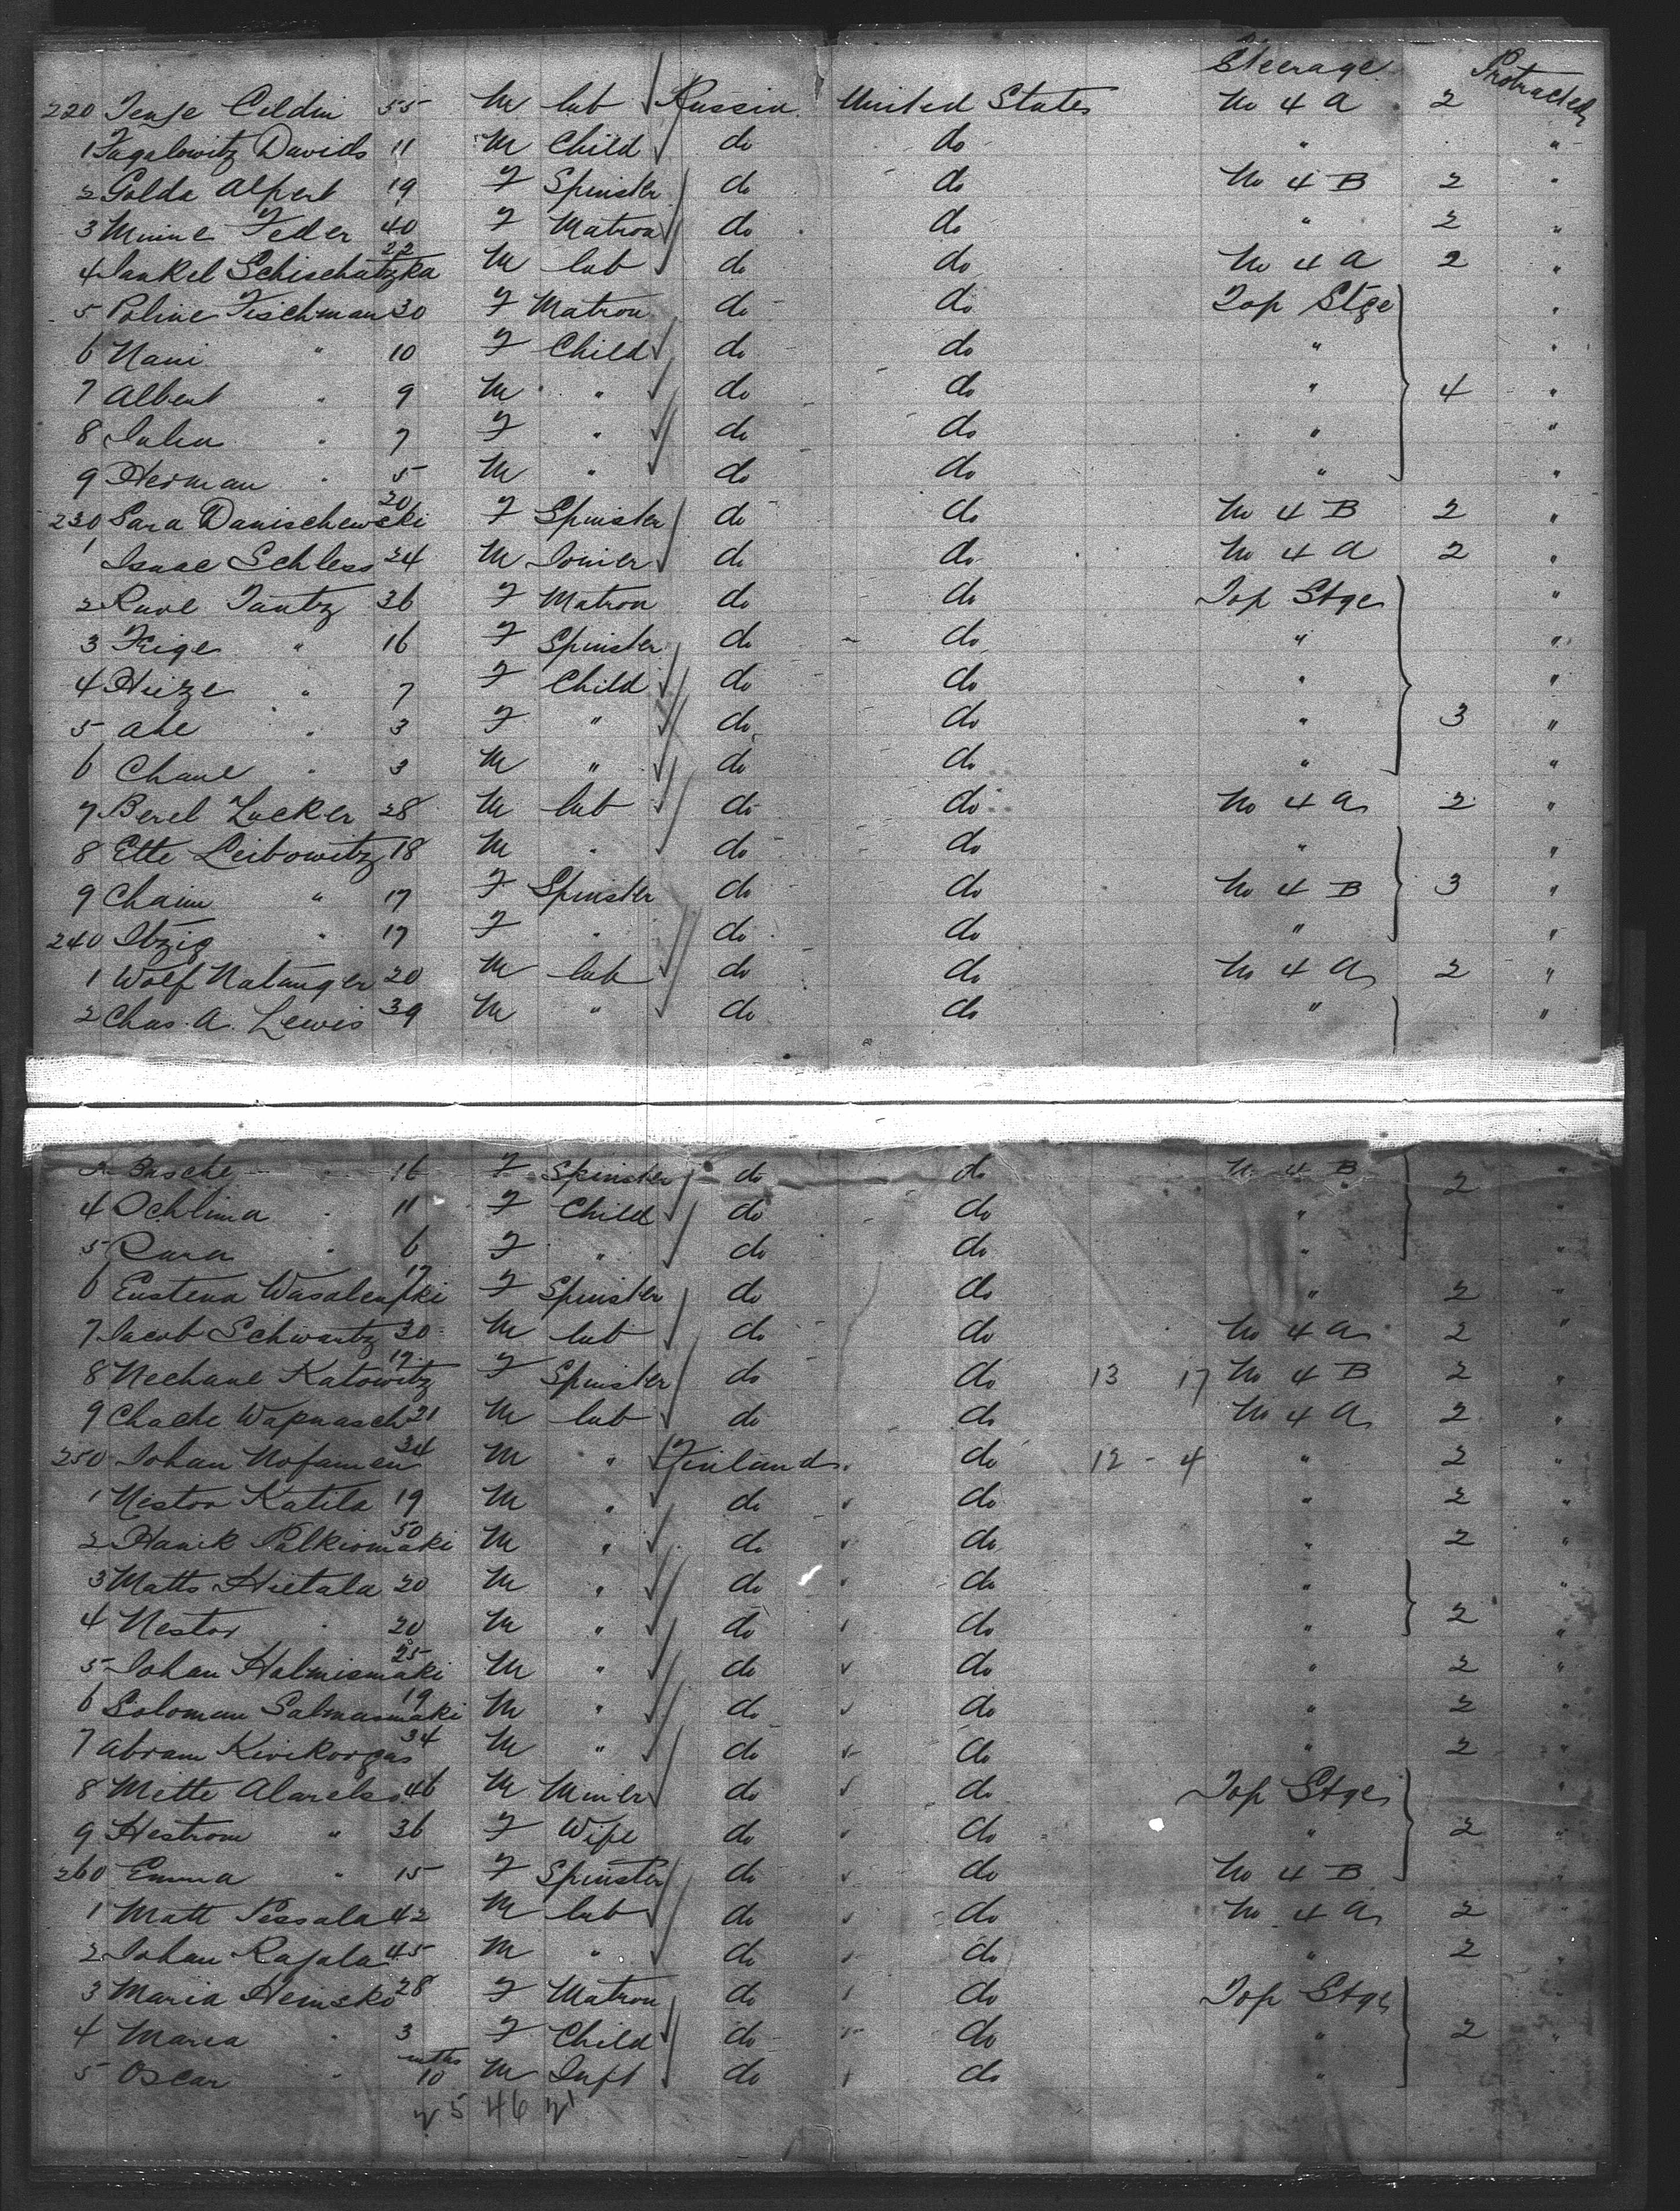 Steerage Protracted
220 Tense Celdin 55 M lab Russia United States No 4 A 2
1 Fagalowitz Davids 11 M Child do do " "
2 Golda Alpert 19 F Spinster do do No 4 B 2 "
3 Minne Feder 40 F Matron do do " 2 "
4 Jankel Schischatzka 22 M lab do do No 4 A 2 "
5 Poline Fischman 30 F Matron do do Top Stge "
6 Nani " 10 F Child do do " "
7 Albert " 9 M " do do " 4 "
8 Julia " 7 F " do do " "
9 Herman " 5 M " do do " "
230 Sara Danischewski 20 F Spinster do do No 4 B 2 "
1 Isaac Schless 24 M Joiner do do No 4 A 2 "
2 Rave Tantz 36 F Matron do do Top Stge "
3 Feige " 16 F Spinster do do " "
4 Hirze " 7 F Child do do " "
5 Abe " 3 F " do do " 3 "
6 Chane " 3 M " do do " "
7 Berel Zucker 28 M lab do do No 4 A 2 "
8 Ette Leibowitz 18 M " do do " "
9 Chaim " 17 F Spinster do do No 4 B 3 "
240 Itzig " 17 F " do do " "
1 Wolf Natanger 20 M lab do do No 4 A 2 "
2 Chas. A. Lewis 39 M " do do " "
3 Basche " 16 F Spinster do do No 4 B 2 "
4 Ochlima " 11 F Child do do " "
5 Rara " 6 F " do do " "
6 Eustena Wasalenski 17 F Spinster do do " 2 "
7 Jacob Schwartz 30 M lab do do No 4 A 2 "
8 Nechane Katowitz 17 F Spinster do do 13 17 No 4 B 2 "
9 Chache Wapnasch 21 M lab do do No 4 A 2 "
250 Johan Nofamen 34 M " Finland do 12 - 4 " 2 "
1 Nestor Katila 19 M " do do " 2 "
2 Hanik Palkiomaki 50 M " do do " 2 "
3 Matts Hietala 20 M " do do " "
4 Nestor " 20 M " do do " 2 "
5 Johan Halmismaki 25 M " do do " 2 "
6 Soloman Salmasmaki 19 M " do do " 2 "
7 Abram Kivikorgas 34 M " do do " 2 "
8 Mette Alarels 46 M Miner do do Top Stge "
9 Hestrom " 36 F Wife do do " 2 "
260 Emma " 15 F Spinster do do No 4 B
1 Matt Pessala 42 M lab do do No 4 A 2 "
2 Johan Rajala 45 M " do do " 2 "
3 Maria Heinsko 28 F Matron do do Top Stge
4 Maria " 3 F Child do do " 2 "
5 Oscar " 10 mths M Inft do do "
25 46 21